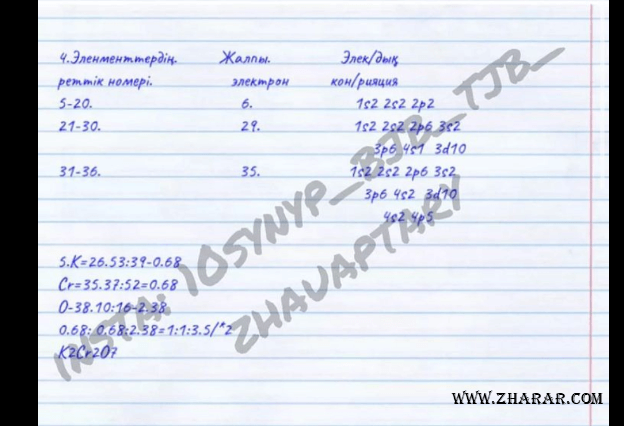 4.Эленменттердің. Жалпы. Элек/дық
реттік номері. электрон кон/рияция
5-20. 6. 1s2 2s2 2p2
21-30. 29. 1s2 2s2 2p6 3s2
3p6 4s1 3d10
31-36. 35. 1s2 2s2 2p6 3s2
3p6 4s2 3d10
4s2 4p5
5.K=26.53:39-0.68
Cr=35.37:52=0.68
O-38.10:16-2.38
0.68: 0.68:2.38=1:1:3.5/*2
K2Cr2O7
INSTA: 10SYNYP_BJB_TJB_
ZHAUAPTARY
WWW.ZHARAR.COM